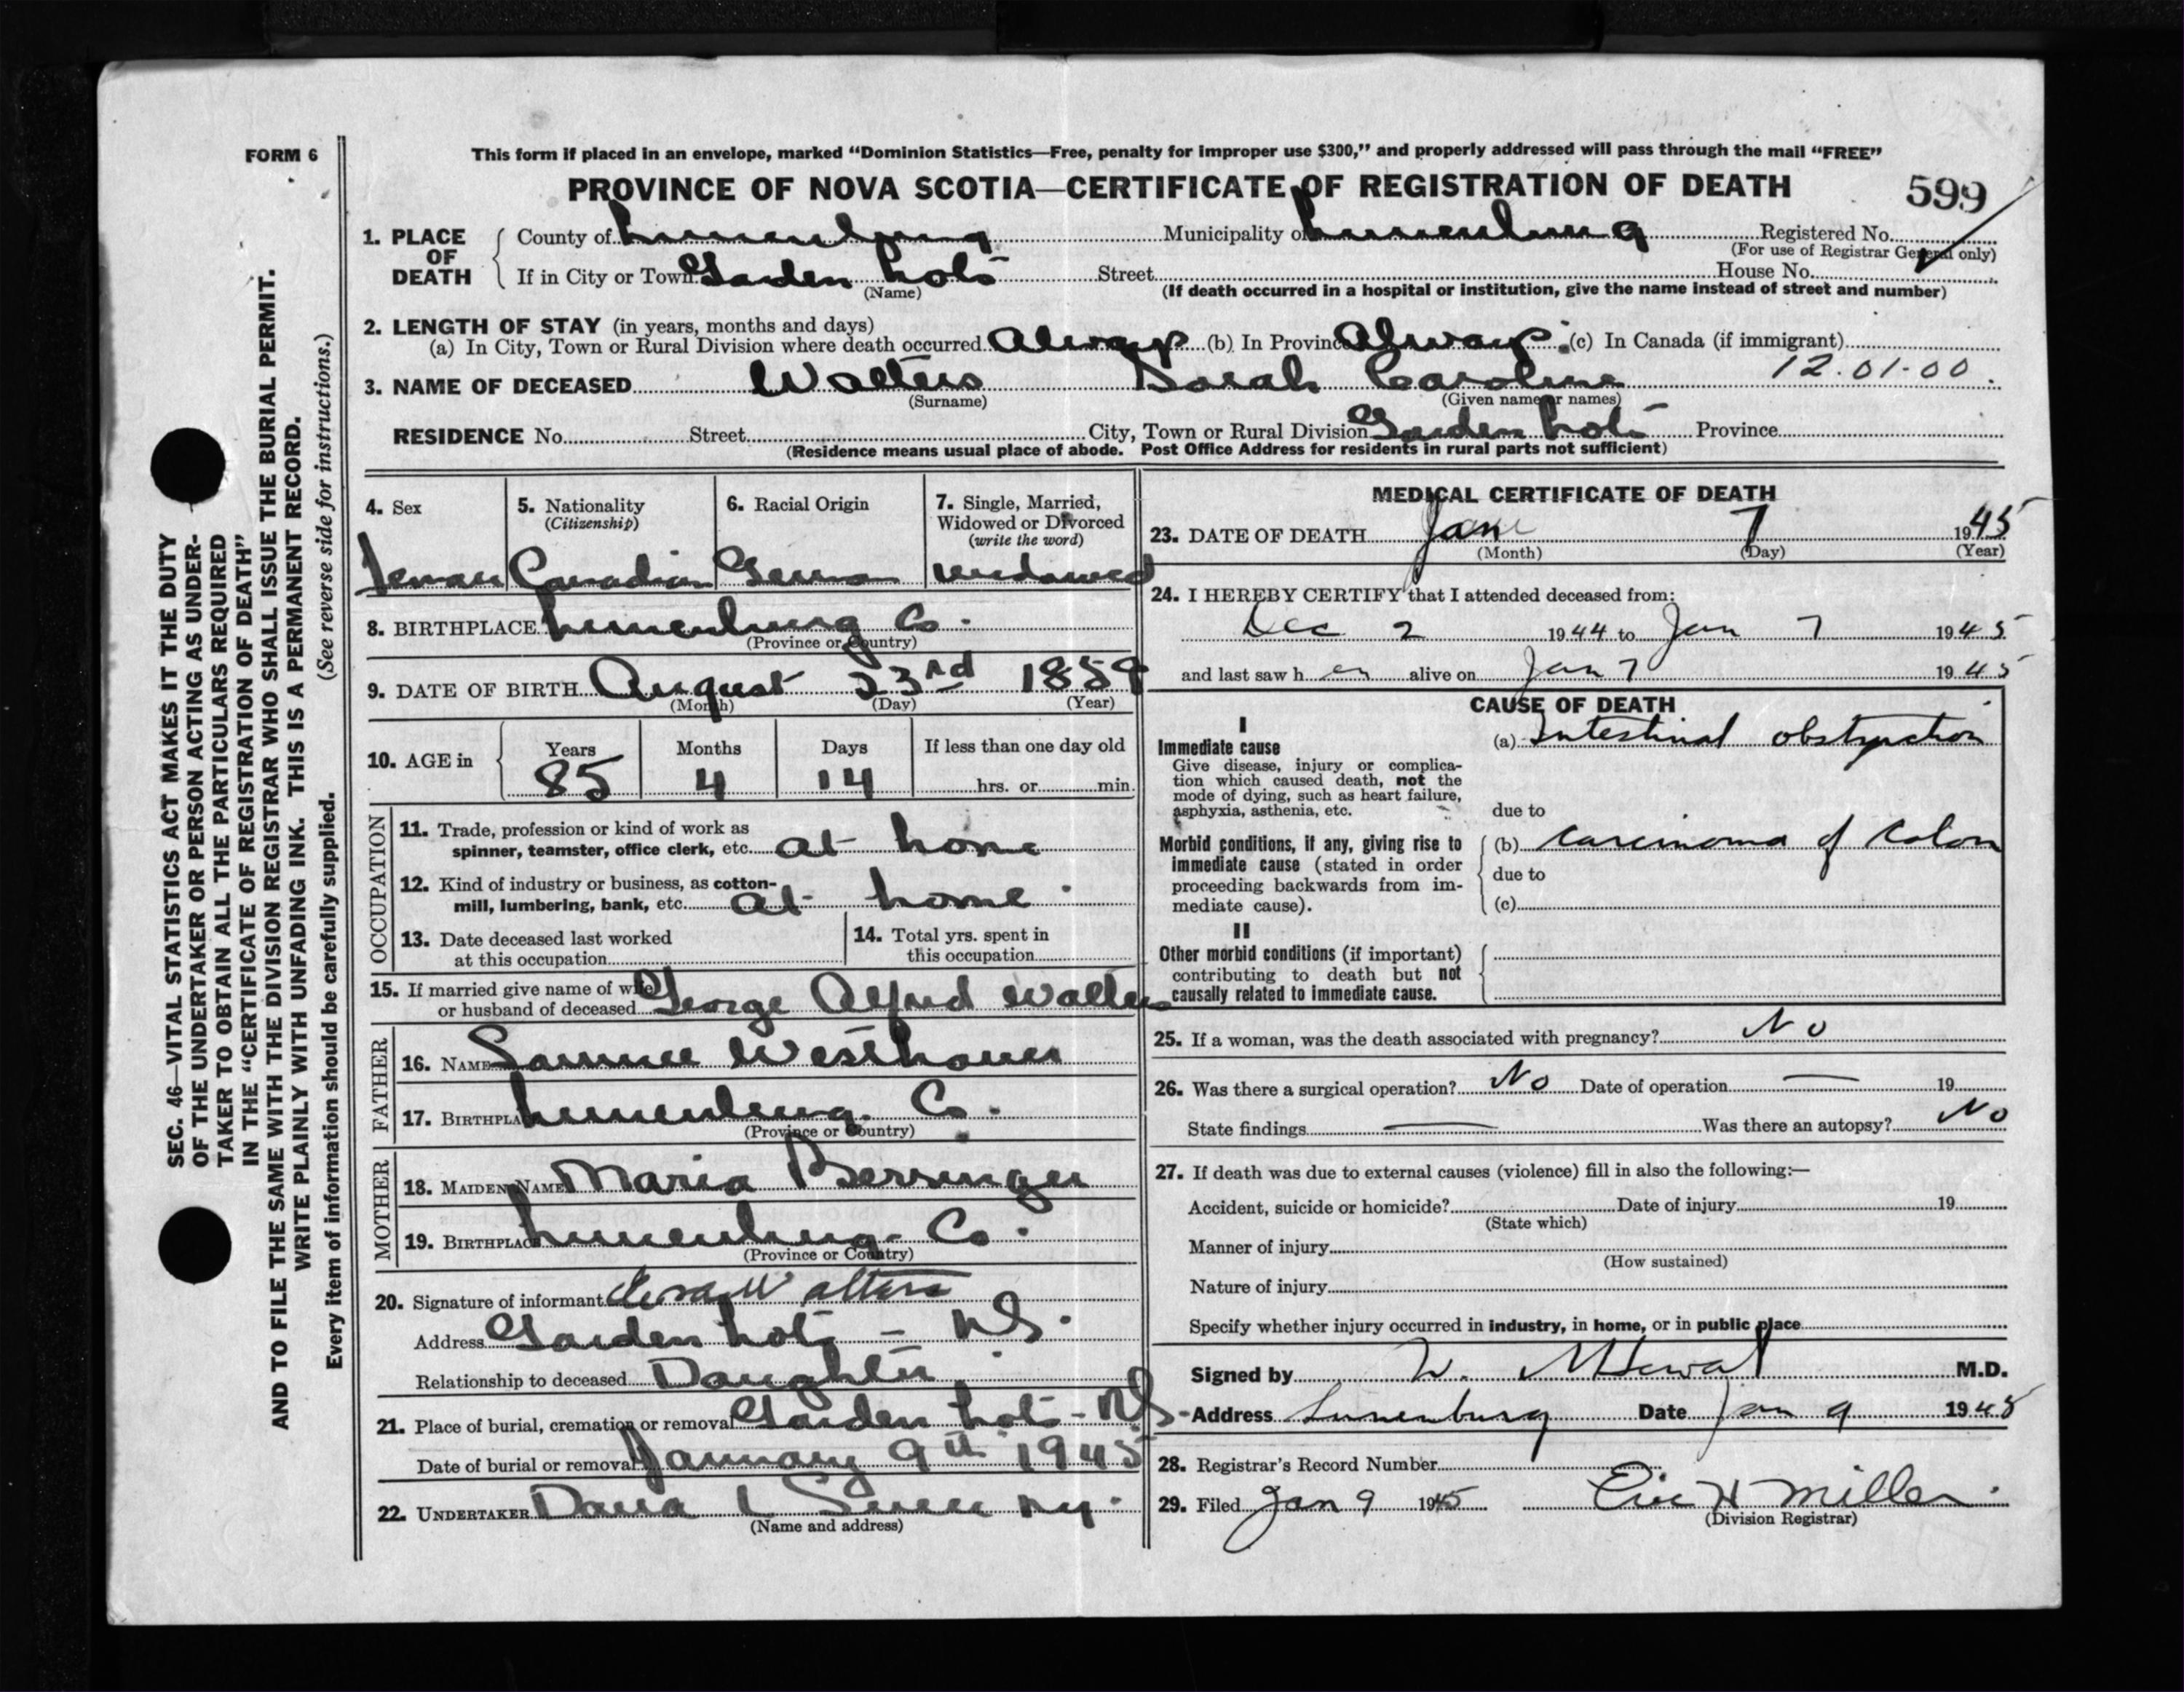 FORM 6
This form if placed in an envelope, marked “Dominion Statistics—Free, penalty for improper use $300,” and properly addressed will pass through the mail “FREE”
PROVINCE OF NOVA SCOTIA—CERTIFICATE OF REGISTRATION OF DEATH
599
1. PLACE OF DEATH
County of Lunenburg Municipality of Lunenburg Registered No.
(For use of Registrar General only)
If in City or Town Garden Lots Street House No.
(Name)
(If death occurred in a hospital or institution, give the name instead of street and number)
2. LENGTH OF STAY (in years, months and days)
(a) In City, Town or Rural Division where death occurred Always (b) In Province Always (c) In Canada (if immigrant)
12.01-00
3. NAME OF DECEASED Walters Sarah Caroline
(Surname) (Given name or names)
RESIDENCE No. Street City, Town or Rural Division Garden Lots Province
(Residence means usual place of abode. Post Office Address for residents in rural parts not sufficient)
SEC. 46—VITAL STATISTICS ACT MAKES IT THE DUTY
OF THE UNDERTAKER OR PERSON ACTING AS UNDER-
TAKER TO OBTAIN ALL THE PARTICULARS REQUIRED
IN THE “CERTIFICATE OF REGISTRATION OF DEATH”
AND TO FILE THE SAME WITH THE DIVISION REGISTRAR WHO SHALL ISSUE THE BURIAL PERMIT.
WRITE PLAINLY WITH UNFADING INK. THIS IS A PERMANENT RECORD.
Every item of information should be carefully supplied. (See reverse side for instructions.)
4. Sex
Female
5. Nationality
(Citizenship)
Canadian
6. Racial Origin
German
7. Single, Married,
Widowed or Divorced
(write the word)
Widowed
8. BIRTHPLACE Lunenburg Co.
(Province or Country)
9. DATE OF BIRTH August 23rd 1859
(Month) (Day) (Year)
10. AGE in
Years Months Days If less than one day old
85 4 14 hrs. or min.
OCCUPATION
11. Trade, profession or kind of work as
spinner, teamster, office clerk, etc. at home
12. Kind of industry or business, as cotton-
mill, lumbering, bank, etc. at home
13. Date deceased last worked
at this occupation
14. Total yrs. spent in
this occupation
15. If married give name of wife
or husband of deceased George Alfred Walters
FATHER
16. NAME Samuel Westhaver
17. BIRTHPLACE Lunenburg Co.
(Province or Country)
MOTHER
18. MAIDEN NAME Maria Berringer
19. BIRTHPLACE Lunenburg Co.
(Province or Country)
20. Signature of informant Walters
Address Garden Lots – NS.
Relationship to deceased Daughter
21. Place of burial, cremation or removal Garden Lots – NS
Date of burial or removal January 9th 1945
22. UNDERTAKER
(Name and address)
MEDICAL CERTIFICATE OF DEATH
23. DATE OF DEATH Jan 7 1945
(Month) (Day) (Year)
24. I HEREBY CERTIFY that I attended deceased from:
Dec 2 1944 to Jan 7 1945
and last saw h er alive on Jan 7 1945
CAUSE OF DEATH
I
Immediate cause
Give disease, injury or complica-
tion which caused death, not the
mode of dying, such as heart failure,
asphyxia, asthenia, etc.
(a) Intestinal obstruction
due to
Morbid conditions, if any, giving rise to
immediate cause (stated in order
proceeding backwards from im-
mediate cause).
(b) Carcinoma of Colon
due to
(c)
II
Other morbid conditions (if important)
contributing to death but not
causally related to immediate cause.
25. If a woman, was the death associated with pregnancy? No
26. Was there a surgical operation? No Date of operation — 19
State findings — Was there an autopsy? No
27. If death was due to external causes (violence) fill in also the following:—
Accident, suicide or homicide? Date of injury 19
(State which)
Manner of injury
(How sustained)
Nature of injury
Specify whether injury occurred in industry, in home, or in public place
Signed by M.D.
Address Lunenburg Date Jan 9 1945
28. Registrar's Record Number
29. Filed Jan 9 1945 Eric H Miller
(Division Registrar)